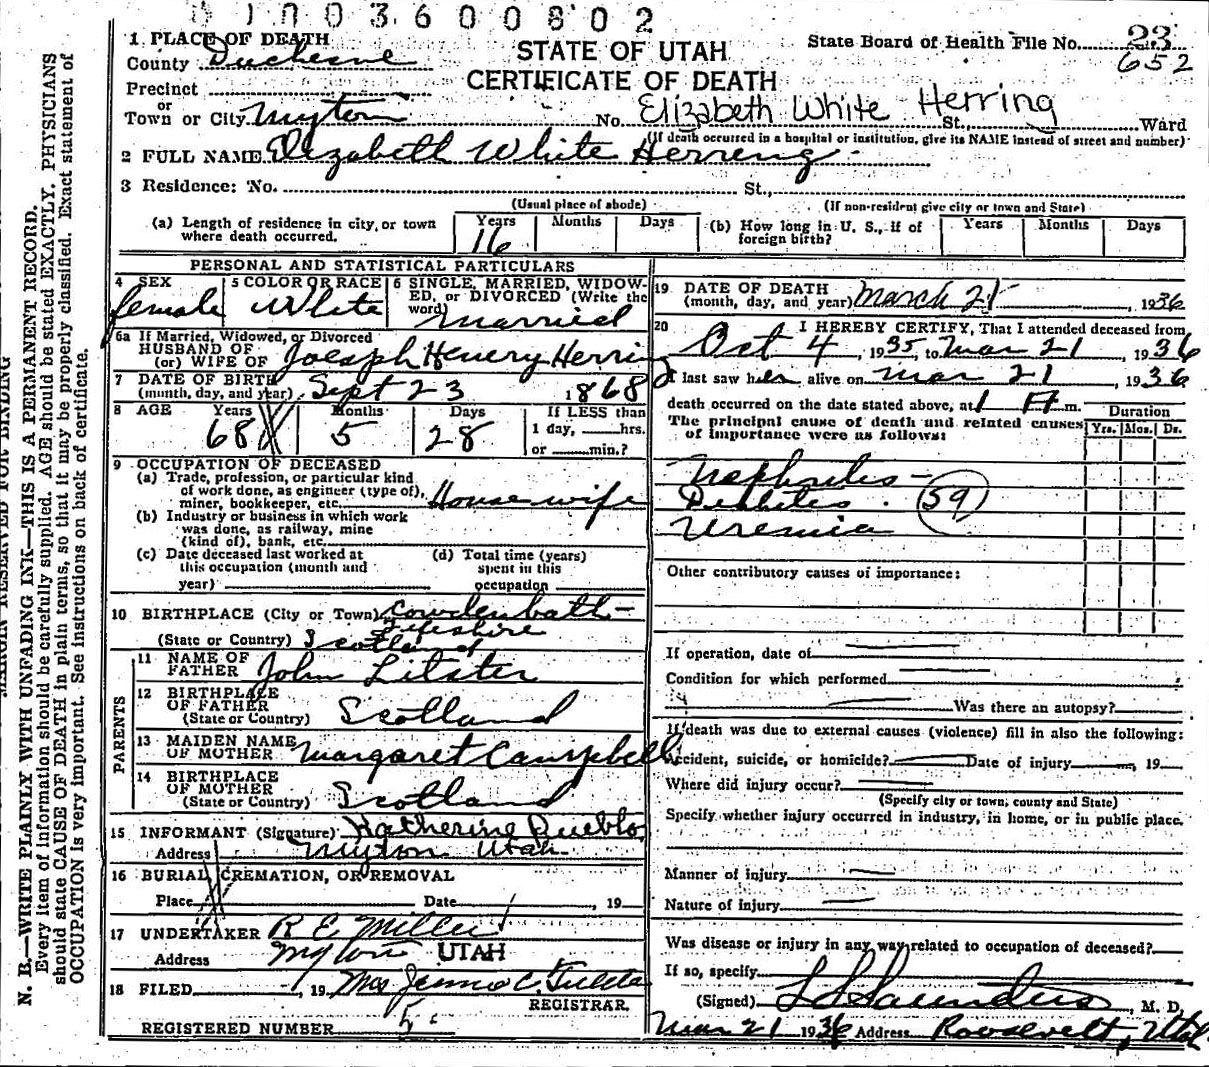 0 1 0 0 3 6 0 0 8 0 2
1 PLACE OF DEATH
County Duchesne
STATE OF UTAH
State Board of Health File No. 23
652
CERTIFICATE OF DEATH
Precinct
or
Town or City Myton No. Elizabeth White Herring St., Ward
(If death occurred in a hospital or institution, give its NAME instead of street and number)
2 FULL NAME Elizabeth White Herreng
3 Residence: No. St.,
(Usual place of abode) (If non-resident give city or town and State)
(a) Length of residence in city, or town where death occurred. Years 16 Months Days
(b) How long in U. S., if of foreign birth? Years Months Days
PERSONAL AND STATISTICAL PARTICULARS
4 SEX female
5 COLOR OR RACE White
6 SINGLE, MARRIED, WIDOWED, or DIVORCED (Write the word) Married
6a If Married, Widowed, or Divorced
HUSBAND OF
(or) WIFE OF Joesph Henery Herring
7 DATE OF BIRTH
(month, day, and year) Sept 23 1868
8 AGE Years 68 Months 5 Days 28 If LESS than
1 day, hrs.
or min.?
9 OCCUPATION OF DECEASED
(a) Trade, profession, or particular kind
of work done, as engineer (type of),
miner, bookkeeper, etc. House wife
(b) Industry or business in which work
was done, as railway, mine
(kind of), bank, etc.
(c) Date deceased last worked at
this occupation (month and
year)
(d) Total time (years)
spent in this
occupation
10 BIRTHPLACE (City or Town) Cowdenbath -
Fifeshire
(State or Country) Scotland
PARENTS
11 NAME OF
FATHER John Litster
12 BIRTHPLACE
OF FATHER
(State or Country) Scotland
13 MAIDEN NAME
OF MOTHER Margaret Campbell
14 BIRTHPLACE
OF MOTHER
(State or Country) Scotland
15 INFORMANT (Signature) Katherine Pueblo
Address Myton Utah
16 BURIAL, CREMATION, OR REMOVAL
Place Date , 19
17 UNDERTAKER R E Miller
Address Myton UTAH
18 FILED , 19 Mrs Jennie C.
REGISTRAR.
REGISTERED NUMBER 5
19 DATE OF DEATH
(month, day, and year) March 21 , 1936
20 I HEREBY CERTIFY, That I attended deceased from
Oct 4, 1935, to Mar 21, 1936
I last saw her alive on Mar 21, 1936
death occurred on the date stated above, at 1 A m.
Duration
The principal cause of death and related causes
of importance were as follows:
Yrs. Mos. Ds.
Nephrites -
Diabetes. 59
Uremia
Other contributory causes of importance:
If operation, date of
Condition for which performed
Was there an autopsy?
If death was due to external causes (violence) fill in also the following:
Accident, suicide, or homicide? Date of injury , 19
Where did injury occur?
(Specify city or town, county and State)
Specify whether injury occurred in industry, in home, or in public place.
Manner of injury
Nature of injury
Was disease or injury in any way related to occupation of deceased?
If so, specify
(Signed) L L Saunders, M. D.
Mar 21 1936 Address Roosevelt, Utah
MARGIN RESERVED FOR BINDING
N. B.—WRITE PLAINLY WITH UNFADING INK—THIS IS A PERMANENT RECORD.
Every item of information should be carefully supplied. AGE should be stated EXACTLY. PHYSICIANS
should state CAUSE OF DEATH in plain terms, so that it may be properly classified. Exact statement of
OCCUPATION is very important. See instructions on back of certificate.